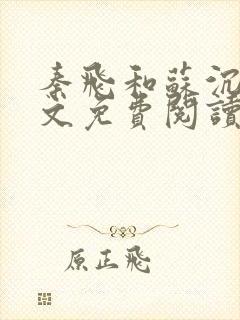 秦飛和蘇沉
文免費閱讀
原正飛